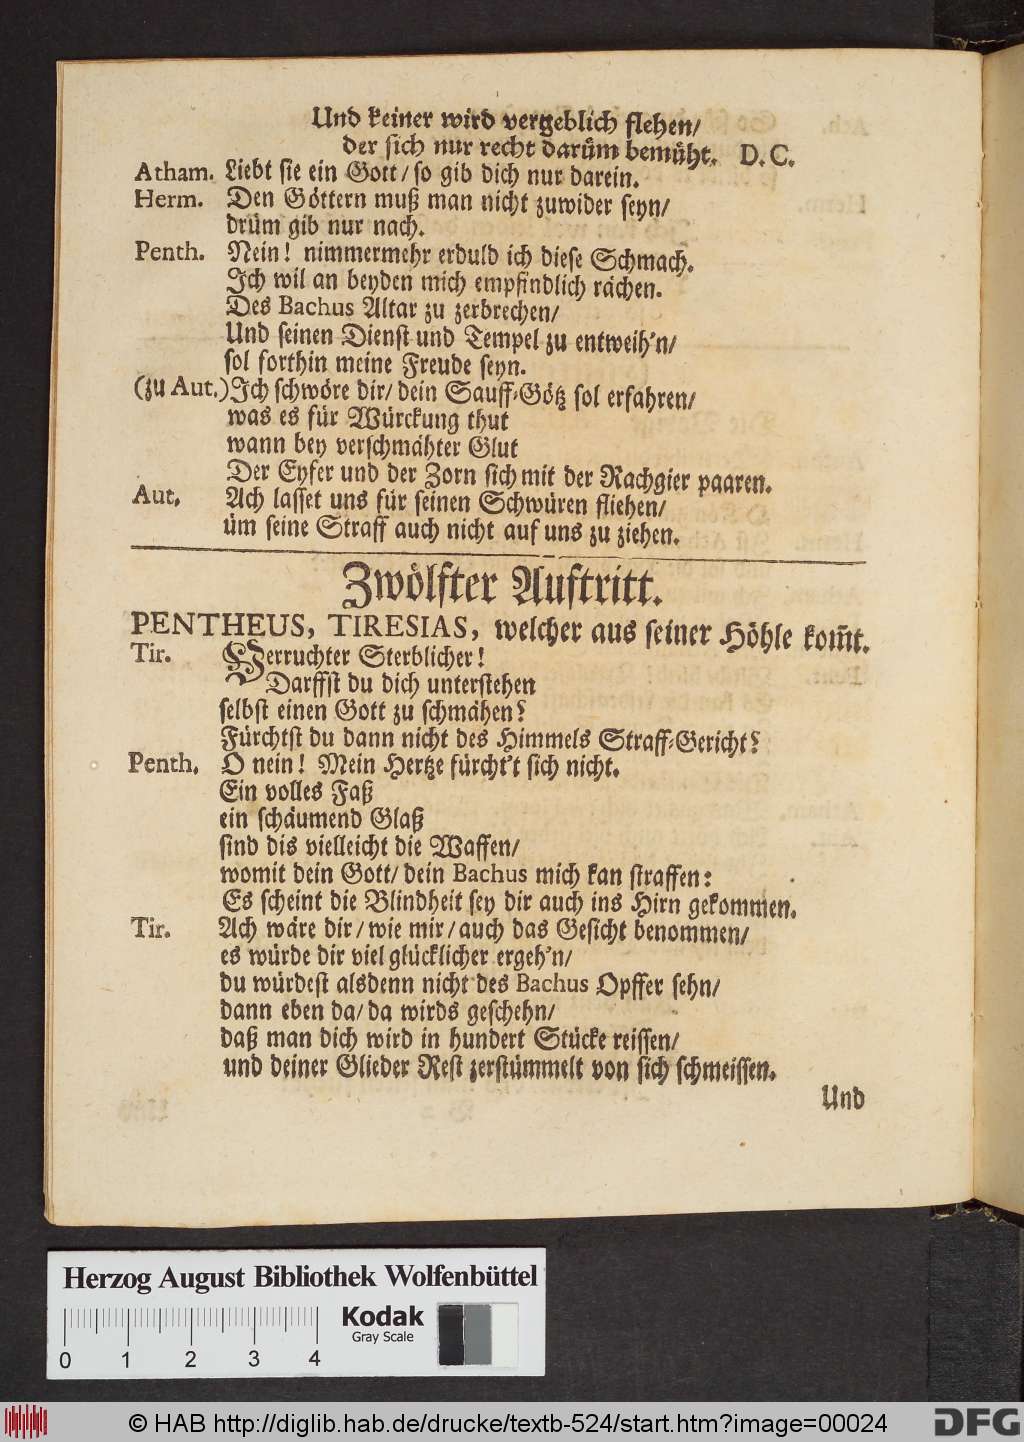 Und keiner wird vergeblich flehen/
der sich nur recht darüm bemüht. D.C.
Atham. Liebt sie ein Gott/ so gib dich nur darein.
Herm. Den Göttern muß man nicht zuwider seyn/
drüm gib nur nach.
Penth. Nein! nimmermehr erduld ich diese Schmach.
Ich wil an beyden mich empfindlich rächen.
Des Bachus Altar zu zerbrechen/
Und seinen Dienst und Tempel zu entweih'n/
sol forthin meine Freude seyn.
(zu Aut.) Ich schwöre dir/ dein Sauff-Götz sol erfahren/
was es für Würckung thut
wann bey verschmähter Glut
Der Eyfer und der Zorn sich mit der Rachgier paaren.
Aut. Ach lasset uns für seinen Schwüren fliehen/
üm seine Straff auch nicht auf uns zu ziehen.
Zwölfter Auftritt.
PENTHEUS, TIRESIAS, welcher aus seiner Höhle kom̃t.
Tir. Verruchter Sterblicher!
Darffst du dich unterstehen
selbst einen Gott zu schmähen?
Fürchtst du dann nicht des Himmels Straff-Gericht?
Penth. O nein! Mein Hertze fürcht't sich nicht.
Ein volles Faß
ein schäumend Glaß
sind dis vielleicht die Waffen/
womit dein Gott/ dein Bachus mich kan straffen:
Es scheint die Blindheit sey dir auch ins Hirn gekommen.
Tir. Ach wäre dir/ wie mir/ auch das Gesicht benommen/
es würde dir viel glücklicher ergeh'n/
du würdest alsdenn nicht des Bachus Opffer sehn/
dann eben da/ da wirds geschehn/
daß man dich wird in hundert Stücke reissen/
und deiner Glieder Rest zerstümmelt von sich schmeissen.
Und
Herzog August Bibliothek Wolfenbüttel
Kodak
Gray Scale
0 1 2 3 4
© HAB http://diglib.hab.de/drucke/textb-524/start.htm?image=00024
DFG